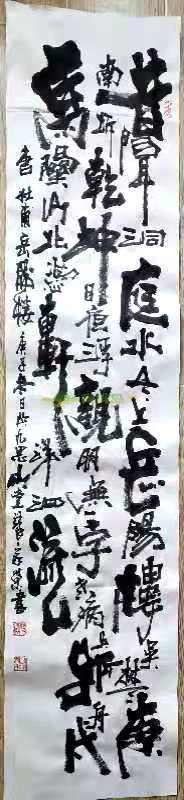 昔聞洞庭水今上岳陽樓吳楚東
南坼乾坤日夜浮親朋無一字老病有孤舟戎
馬關山北憑軒涕泗流
唐杜甫岳陽樓庚子冬日於九思山堂